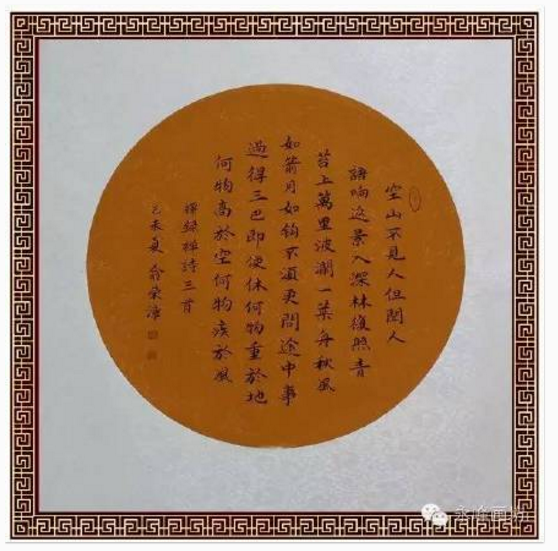 空山不見人但聞人
語响返景入深林復照青
苔上萬里波瀾一葉舟秋風
如箭月如鈎不須更問途中事
過得三巴即便休何物重於地
何物高於空何物疾於風
擇録禅詩三首
乙未夏 俞荣